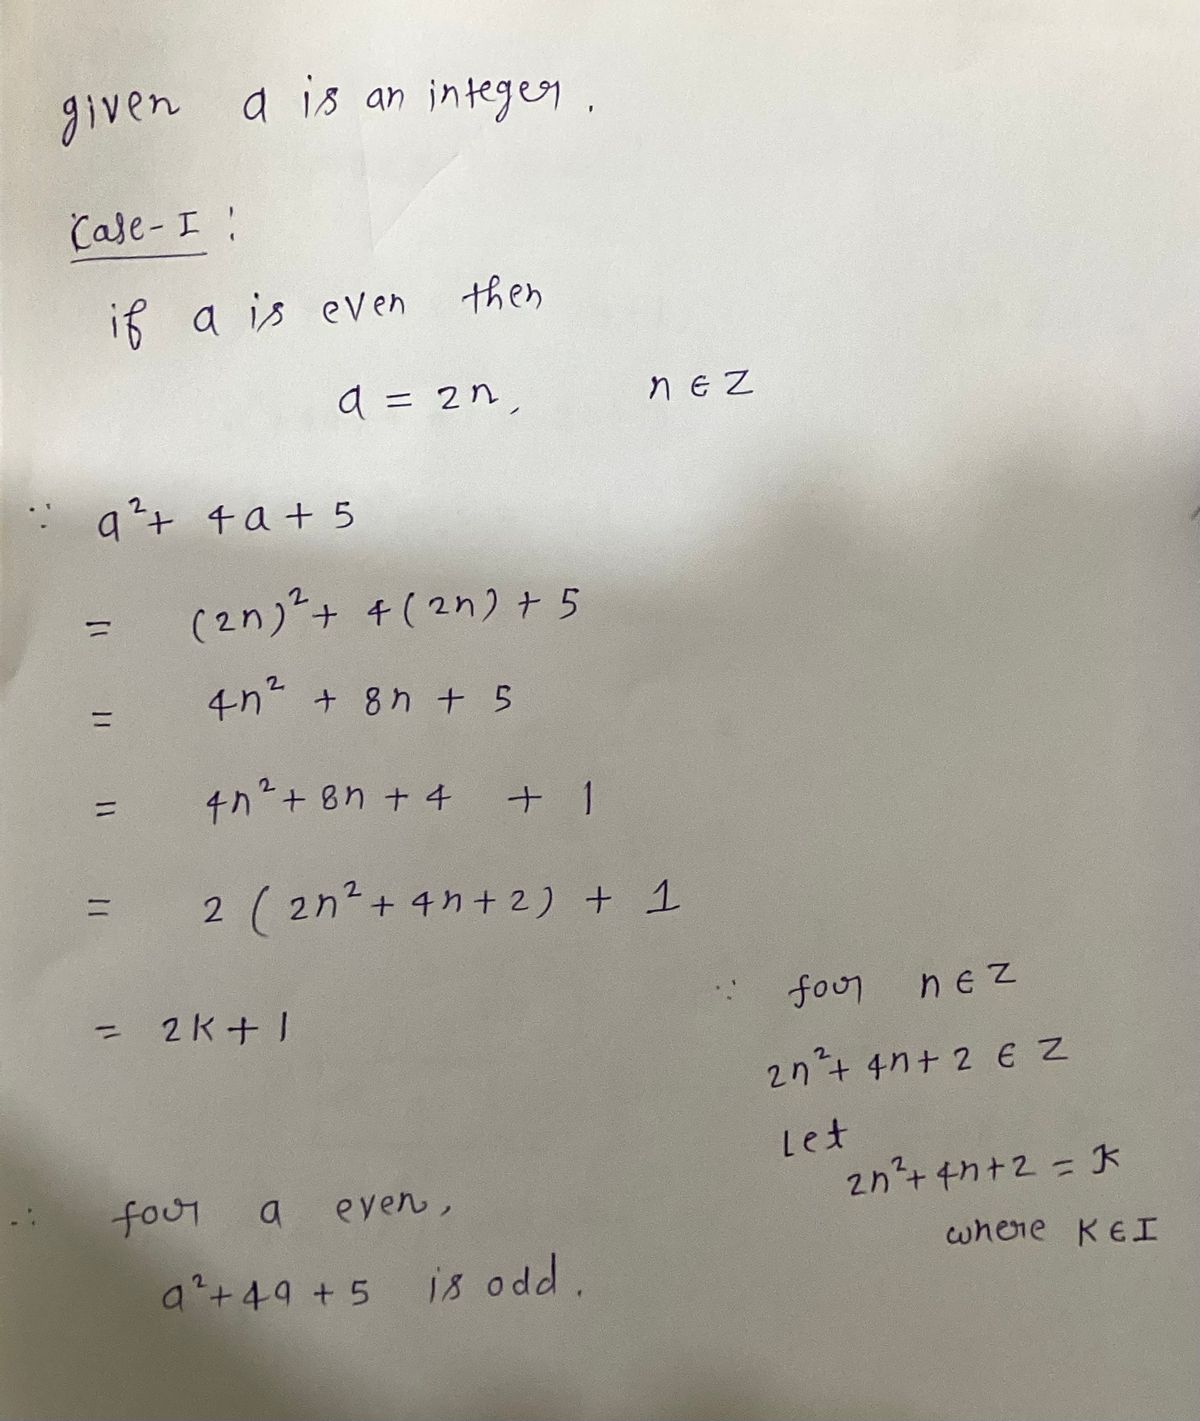 given a is an integer.
Case-I :
if a is even then
a = 2n, n ∈ Z
∵ a² + 4a + 5
= (2n)² + 4(2n) + 5
= 4n² + 8n + 5
= 4n² + 8n + 4 + 1
= 2 ( 2n² + 4n + 2) + 1
= 2k + 1
∵ for n ∈ Z
2n² + 4n + 2 ∈ Z
Let
2n² + 4n + 2 = k
where k ∈ I
∴ for a even,
a² + 4a + 5 is odd.